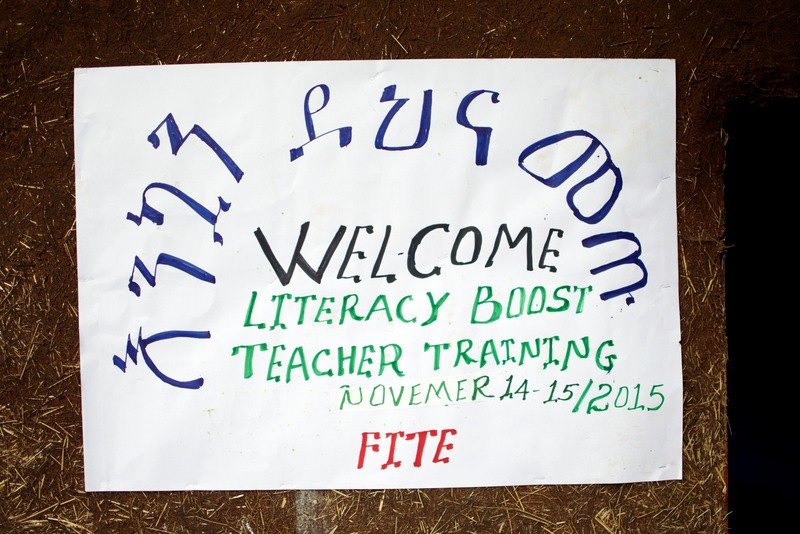 እንኳን ደህና መጡ
WELCOME
LITERACY BOOST
TEACHER TRAINING
NOVEMER 14-15/2015
FITE